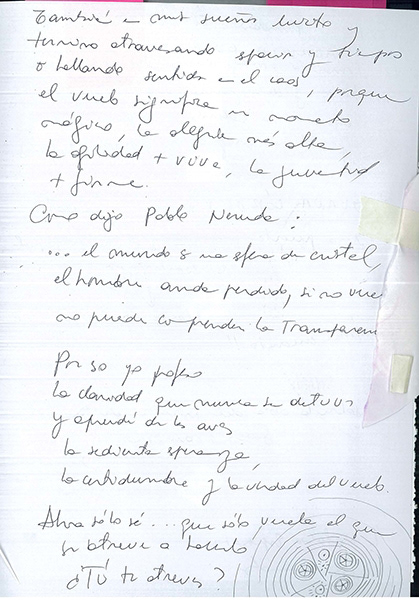 También en mis sueños levito y
termino atravesando espacios y tiempos
o hallando sentido en el caos, porque
el vuelo significa un momento
mágico, la alegría más alta,
la agilidad + viva, la juventud
+ firme.
Como dijo Pablo Neruda:
... el mundo es una esfera de cristal,
el hombre anda perdido, si no vuela
no puede comprender la Transparen
Por eso yo profeso
la claridad que nunca se detuvo
y aprendí de las aves
la sedienta esperanza,
la certidumbre y la verdad del vuelo.
Ahora sólo sé ... que sólo vuela el que
se atreve a hacerlo
¿Tú te atreves?